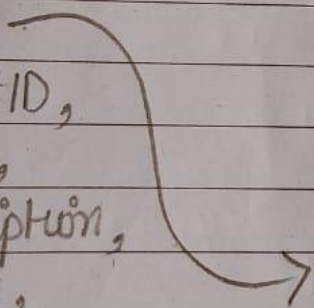 ID,
,
ption,
,